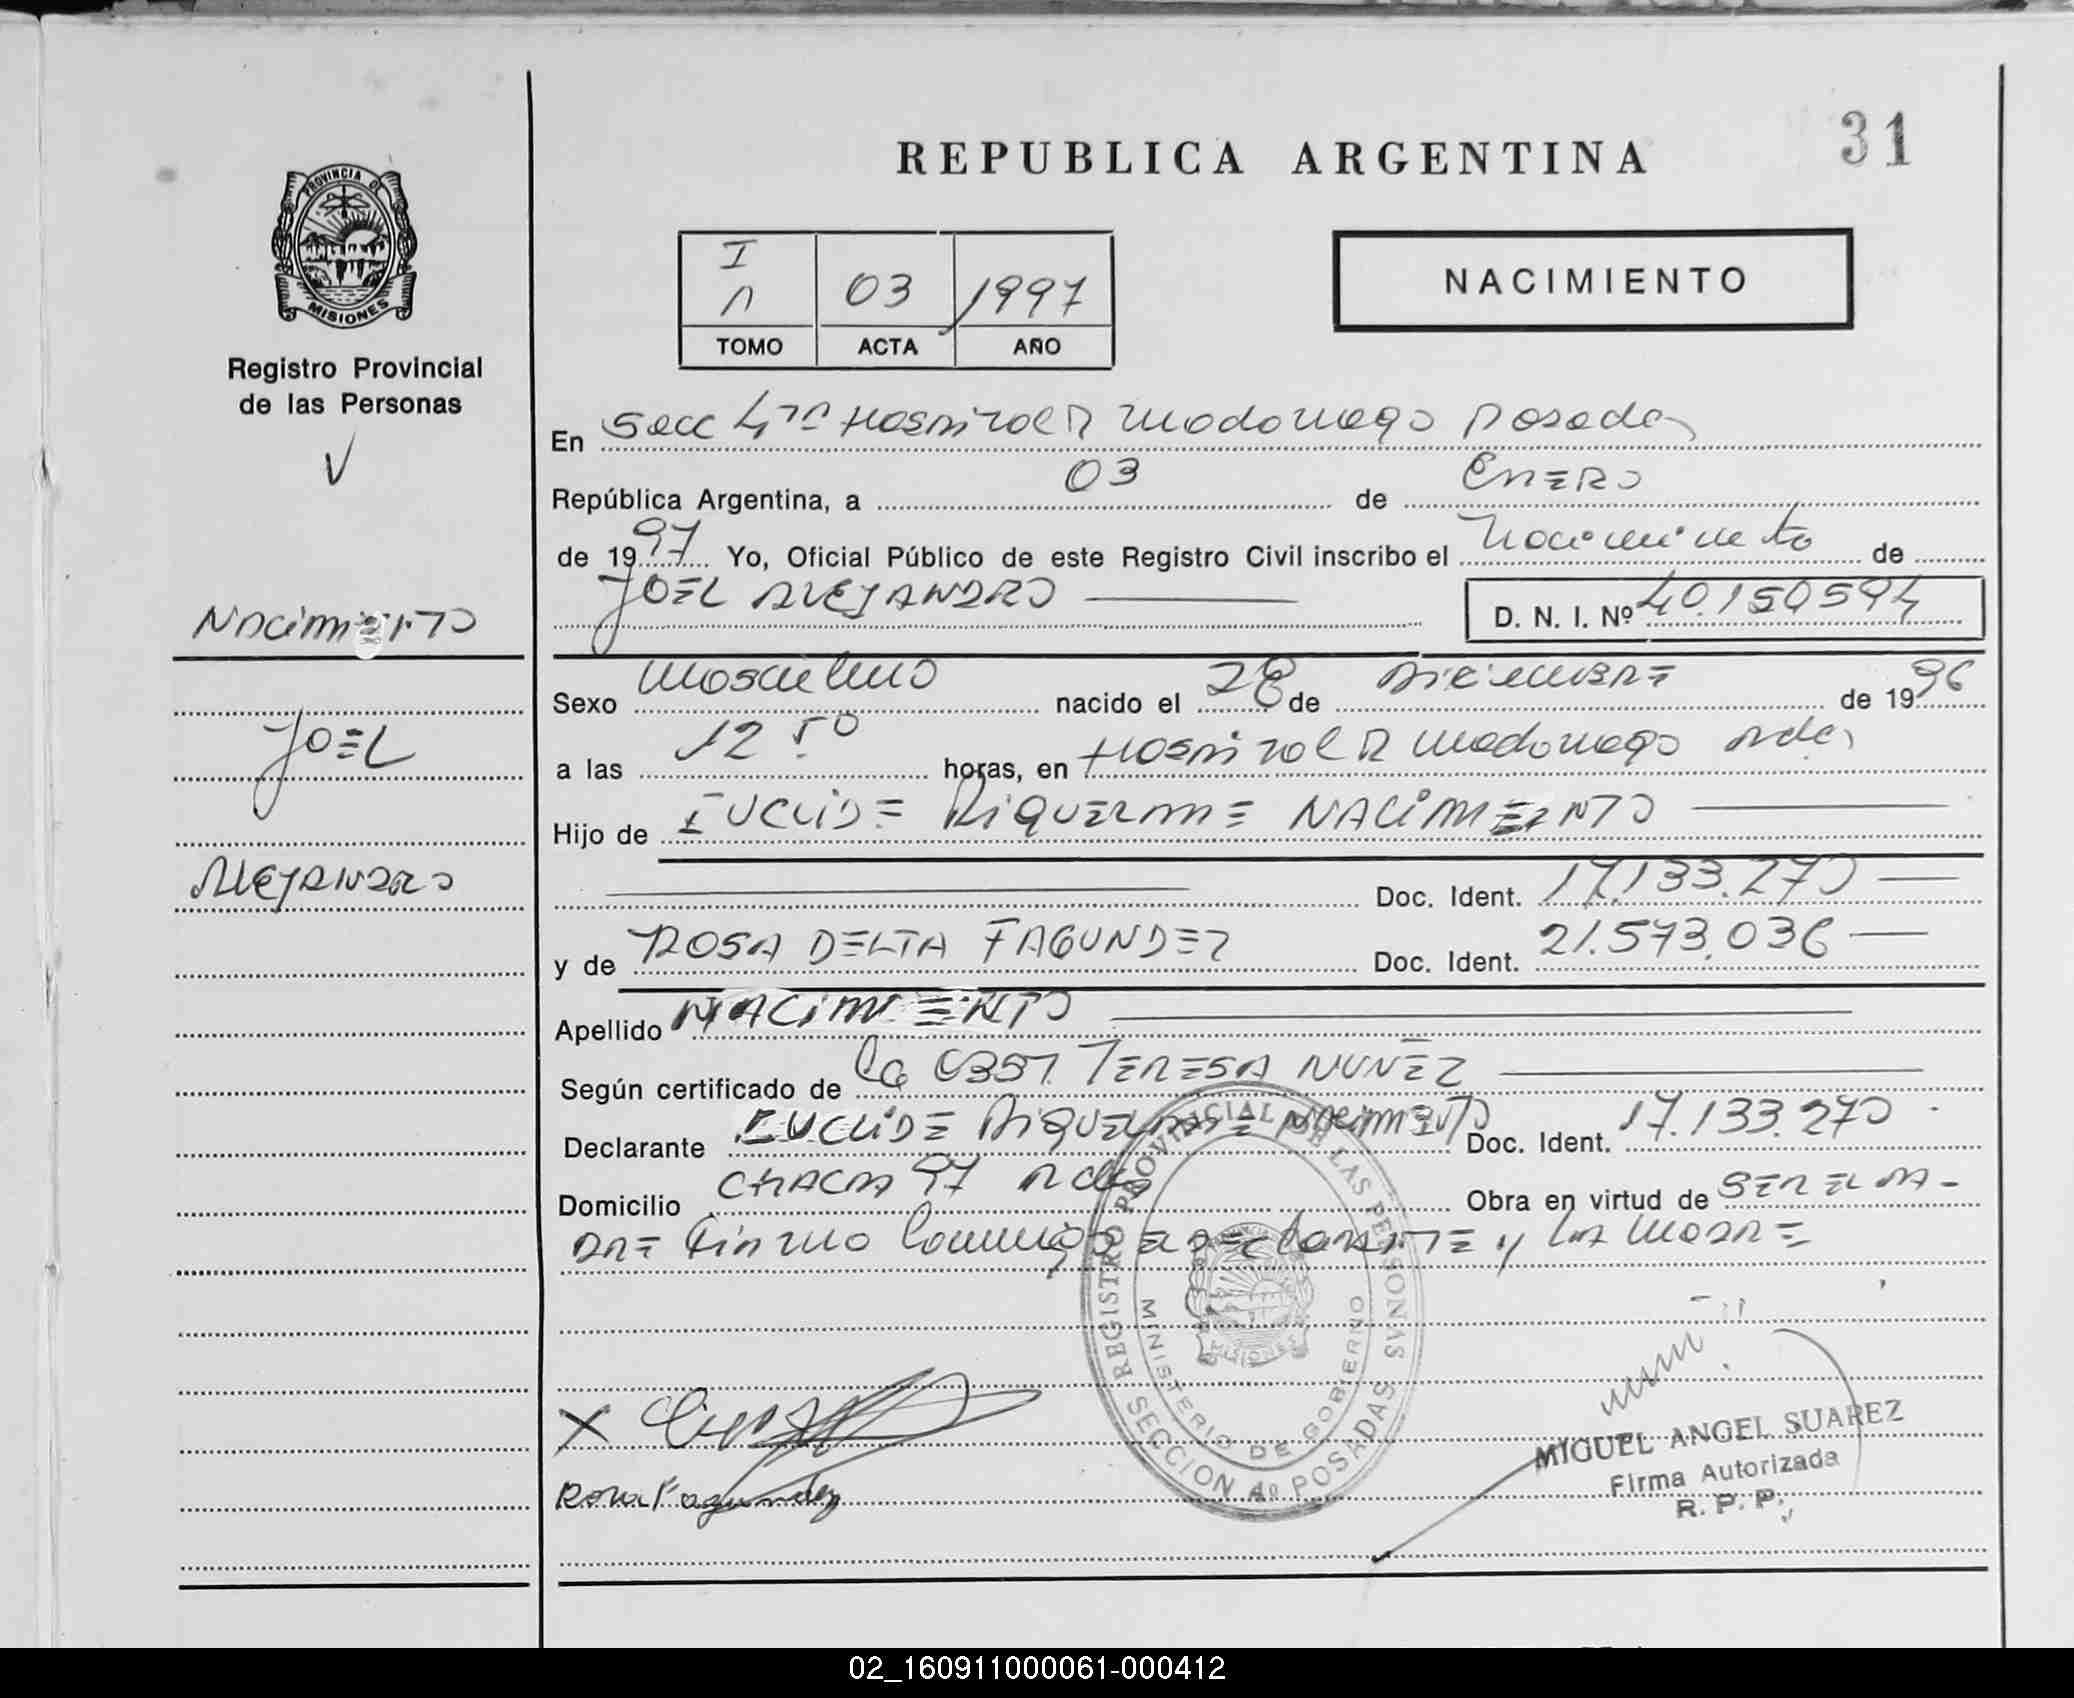 REPUBLICA ARGENTINA
31
PROVINCIA DE
MISIONES
Registro Provincial
de las Personas
I
03
1997
TOMO
ACTA
AÑO
NACIMIENTO
En Secc 4ta Hospital R Madariaga Posadas
República Argentina, a 03 de ENERO
de 1997 Yo, Oficial Público de este Registro Civil inscribo el Nacimiento de
JOEL ALEJANDRO D. N. I. Nº 40.150594
NACIMIENTO
JOEL
ALEJANDRO
Sexo Masculino nacido el 28 de DICIEMBRE de 1996
a las 12 50 horas, en Hospital R Madariaga Pdas
Hijo de EUCLIDE RIQUERME NACIMIENTO
Doc. Ident. 17.133.270
y de ROSA DELIA FAGUNDEZ Doc. Ident. 21.573.036
Apellido NACIMIENTO
Según certificado de la OBST. TERESA NUÑEZ
Declarante EUCLIDE RIQUERME NACIMIENTO Doc. Ident. 17.133.270
Domicilio CHACRA 97 Pdas Obra en virtud de SER EL PA-
DRE Firma Conmigo EL DECLARANTE y LA MADRE
REGISTRO PROVINCIAL DE LAS PERSONAS
MINISTERIO DE GOBIERNO
MISIONES
SECCION 4º POSADAS
X
Rosa Fagundez
MIGUEL ANGEL SUAREZ
Firma Autorizada
R. P. P.
02_160911000061-000412